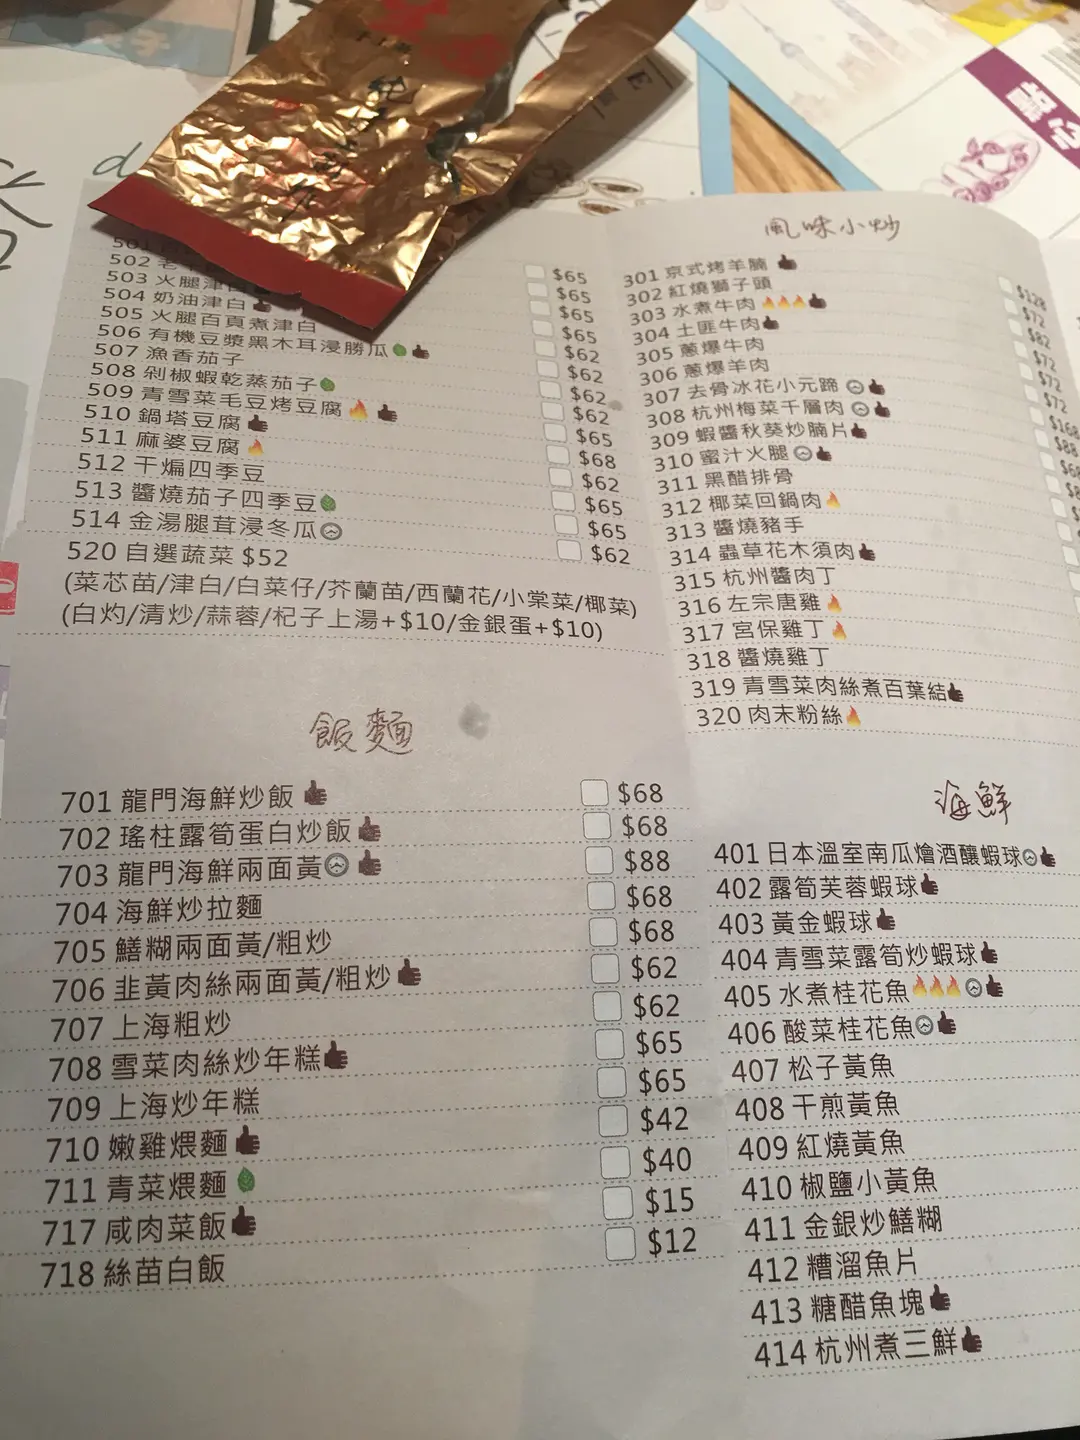 501
502 老
503 火腿津白
504 奶油津白
505 火腿百頁煮津白
506 有機豆漿黑木耳浸勝瓜
507 漁香茄子
508 剁椒蝦乾蒸茄子
509 青雪菜毛豆烤豆腐
510 鍋塔豆腐
511 麻婆豆腐
512 干煸四季豆
513 醬燒茄子四季豆
514 金湯腿茸浸冬瓜
520 自選蔬菜 $52
(菜芯苗/津白/白菜仔/芥蘭苗/西蘭花/小棠菜/椰菜)
(白灼/清炒/蒜蓉/杞子上湯+$10/金銀蛋+$10)
$65
$65
$65
$65
$62
$62
$62
$62
$65
$68
$62
$65
$65
$62
飯麵
701 龍門海鮮炒飯 $68
702 瑤柱露筍蛋白炒飯 $68
703 龍門海鮮兩面黃 $88
704 海鮮炒拉麵 $68
705 鱔糊兩面黃/粗炒 $68
706 韭黃肉絲兩面黃/粗炒 $62
707 上海粗炒 $62
708 雪菜肉絲炒年糕 $65
709 上海炒年糕 $65
710 嫩雞煨麵 $42
711 青菜煨麵 $40
717 咸肉菜飯 $15
718 絲苗白飯 $12
風味小炒
301 京式烤羊腩 $128
302 紅燒獅子頭 $72
303 水煮牛肉 $82
304 土匪牛肉 $72
305 蔥爆牛肉 $72
306 蔥爆羊肉 $72
307 去骨冰花小元蹄 $168
308 杭州梅菜千層肉 $88
309 蝦醬秋葵炒腩片
310 蜜汁火腿
311 黑醋排骨
312 椰菜回鍋肉
313 醬燒豬手
314 蟲草花木須肉
315 杭州醬肉丁
316 左宗唐雞
317 宮保雞丁
318 醬燒雞丁
319 青雪菜肉絲煮百葉結
320 肉末粉絲
海鮮
401 日本溫室南瓜燴酒釀蝦球
402 露筍芙蓉蝦球
403 黃金蝦球
404 青雪菜露筍炒蝦球
405 水煮桂花魚
406 酸菜桂花魚
407 松子黃魚
408 干煎黃魚
409 紅燒黃魚
410 椒鹽小黃魚
411 金銀炒鱔糊
412 糟溜魚片
413 糖醋魚塊
414 杭州煮三鮮